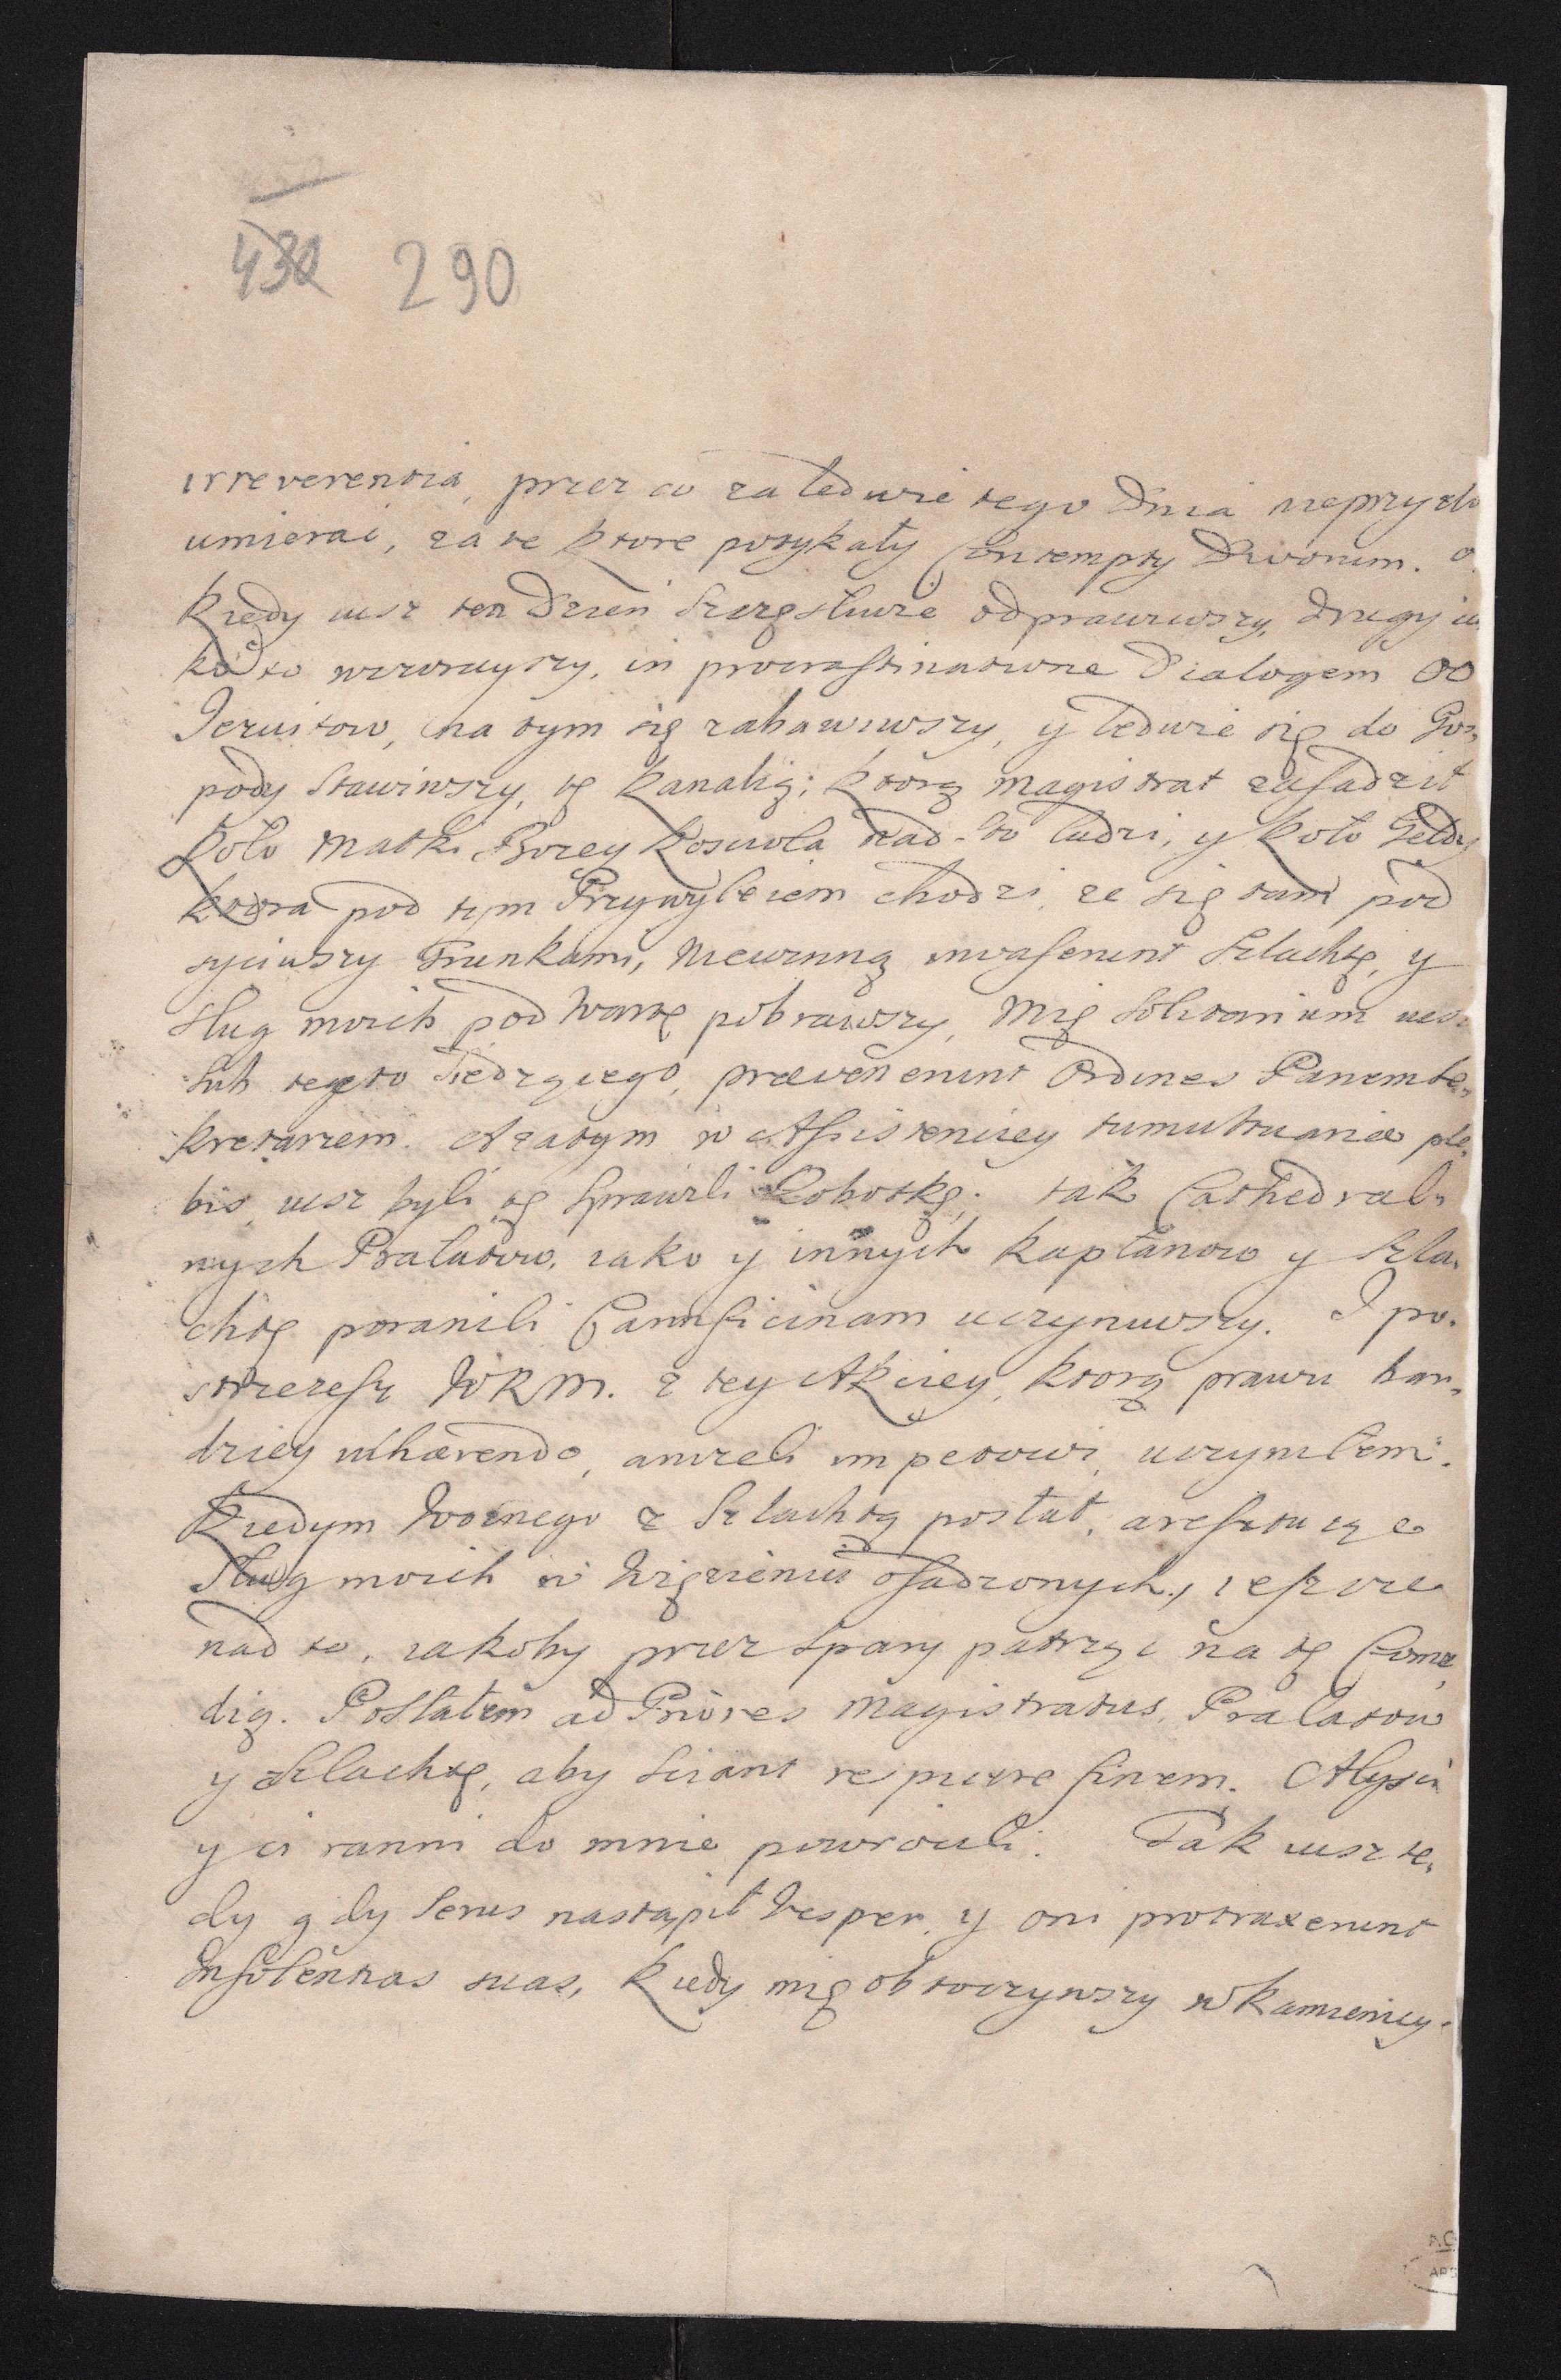 432 290
irreverentia, przez co za ledwie tego Dnia nieprzyszło
umierai, za te ktore potykały Contempty Divorum.
kiedy iusz ten Dzien Szczęsliwie odprawiwszy, drugy ia
ko to wczorayszy, in procrastinatione Dialogiem OO
Jezuitow, na tym się zabawiwszy, y ledwie się do Gos,
pody stawiwszy, tę kanalią; ktorą Magistrat zasadził
koło Matki Bozey kosciola nad-sto ludzi, y koło Geldy
ktora pod tym Przywyleiem chodzi, ze się tam pod
syciwszy Trunkami, Niewinną invaserunt Szlachtę, y
sług moich pod Wartę pobrawszy, Mię Solitarium
sub tecto Siedzącego, prævenerunt Ordines Panem Se,
kretarzem. A zatym w Assistenciey tumultuariæ ple,
bis, iusz byli tę sprawili Robotkę; tak Cathedral,
nych Prałatow, iako y innych kapłanow y Szla,
chtę poranili Carnificinam uczyniwszy. I po,
strzeysz WKM. z tey Akciey, ktorą prawu bar,
dziey inhærendo, anizeli impetowi, uczyniłem.
Kiedym Woznego z Szlachtą posłał, aresztuiąc
Sług moich w Więzieniu osadzonych, ieszcze
nad to, iakoby przez spary patrząc na tę Come,
dią. Posłałem ad Priores Magistratus, Prałatow
y Szlachtę, aby sciant respicere finem. Alysci
y ci ranni do mnie powrocili. Tak iusz te,
dy gdy serus nastąpił Vesper, y oni protraxerunt
Insolentias suas, kiedy mię obtoczywszy w kamienicy.